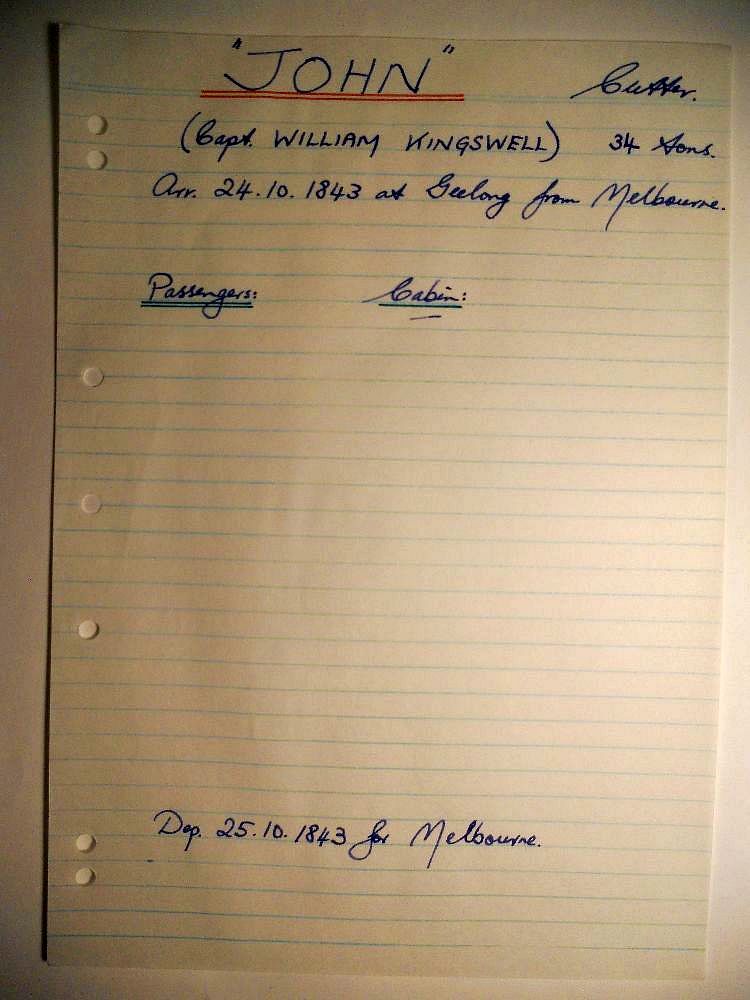 "JOHN" Cutter.
(Capt. WILLIAM KINGSWELL) 34 tons.
Arr. 24.10.1843 at Geelong from Melbourne.
Passengers: Cabin:
Dep. 25.10.1843 for Melbourne.